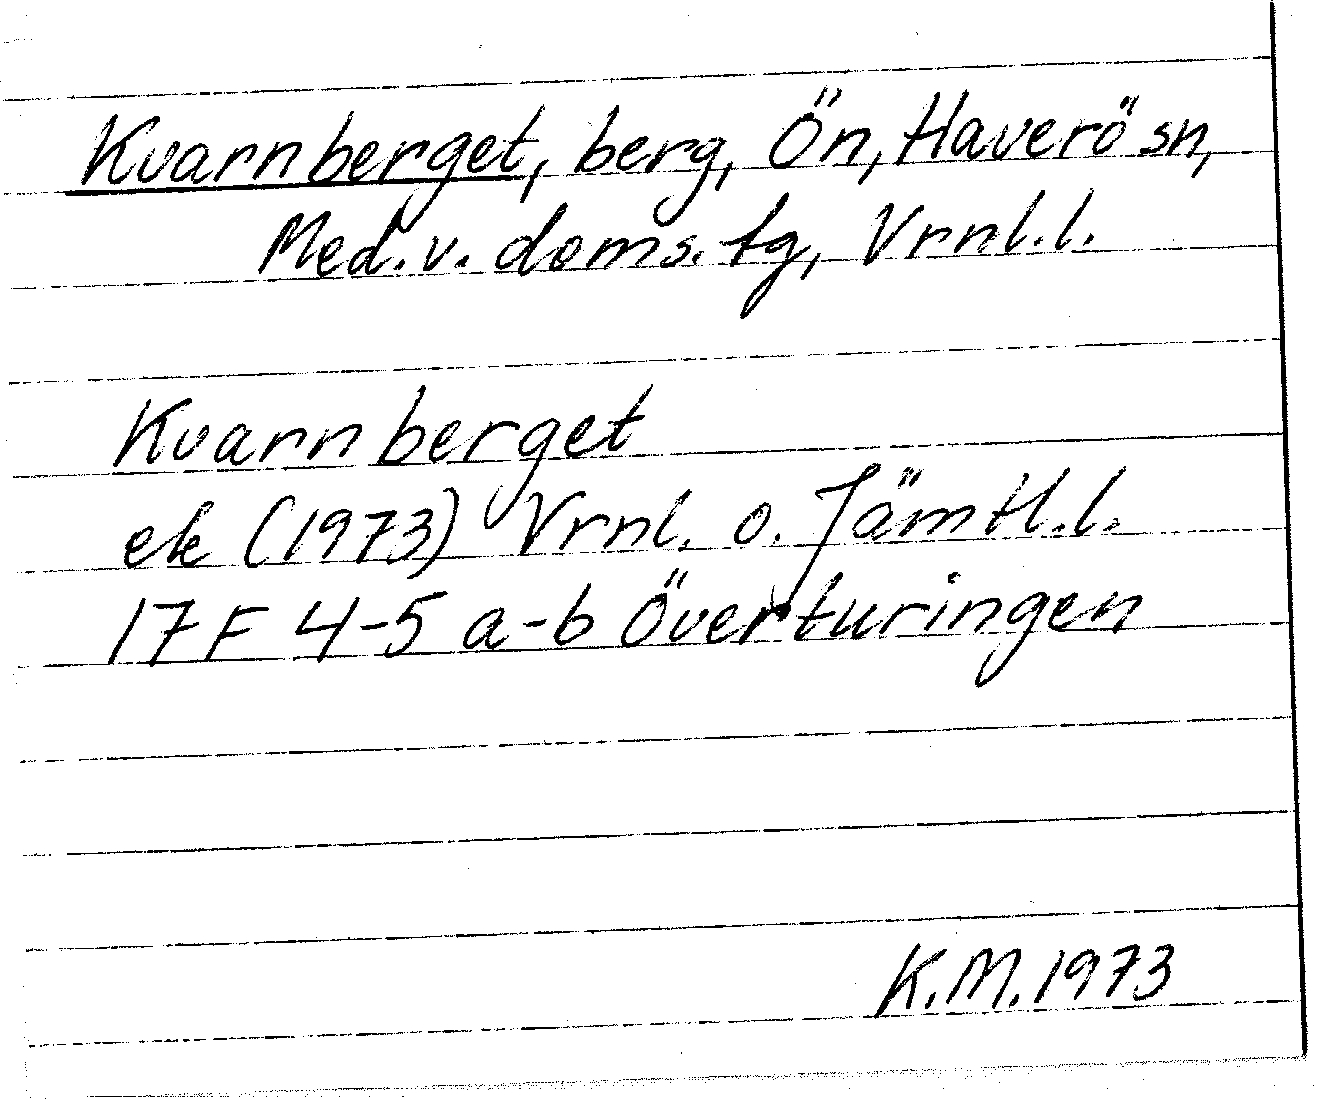 Kvarnberget, berg, Ön, Haverö sn,
Med. v. doms. tg, Vrnl. l.
Kvarnberget
ek (1973) Vrnl. o. Jämtl. l.
17 F 4-5 a-b Överturingen
K.M. 1973